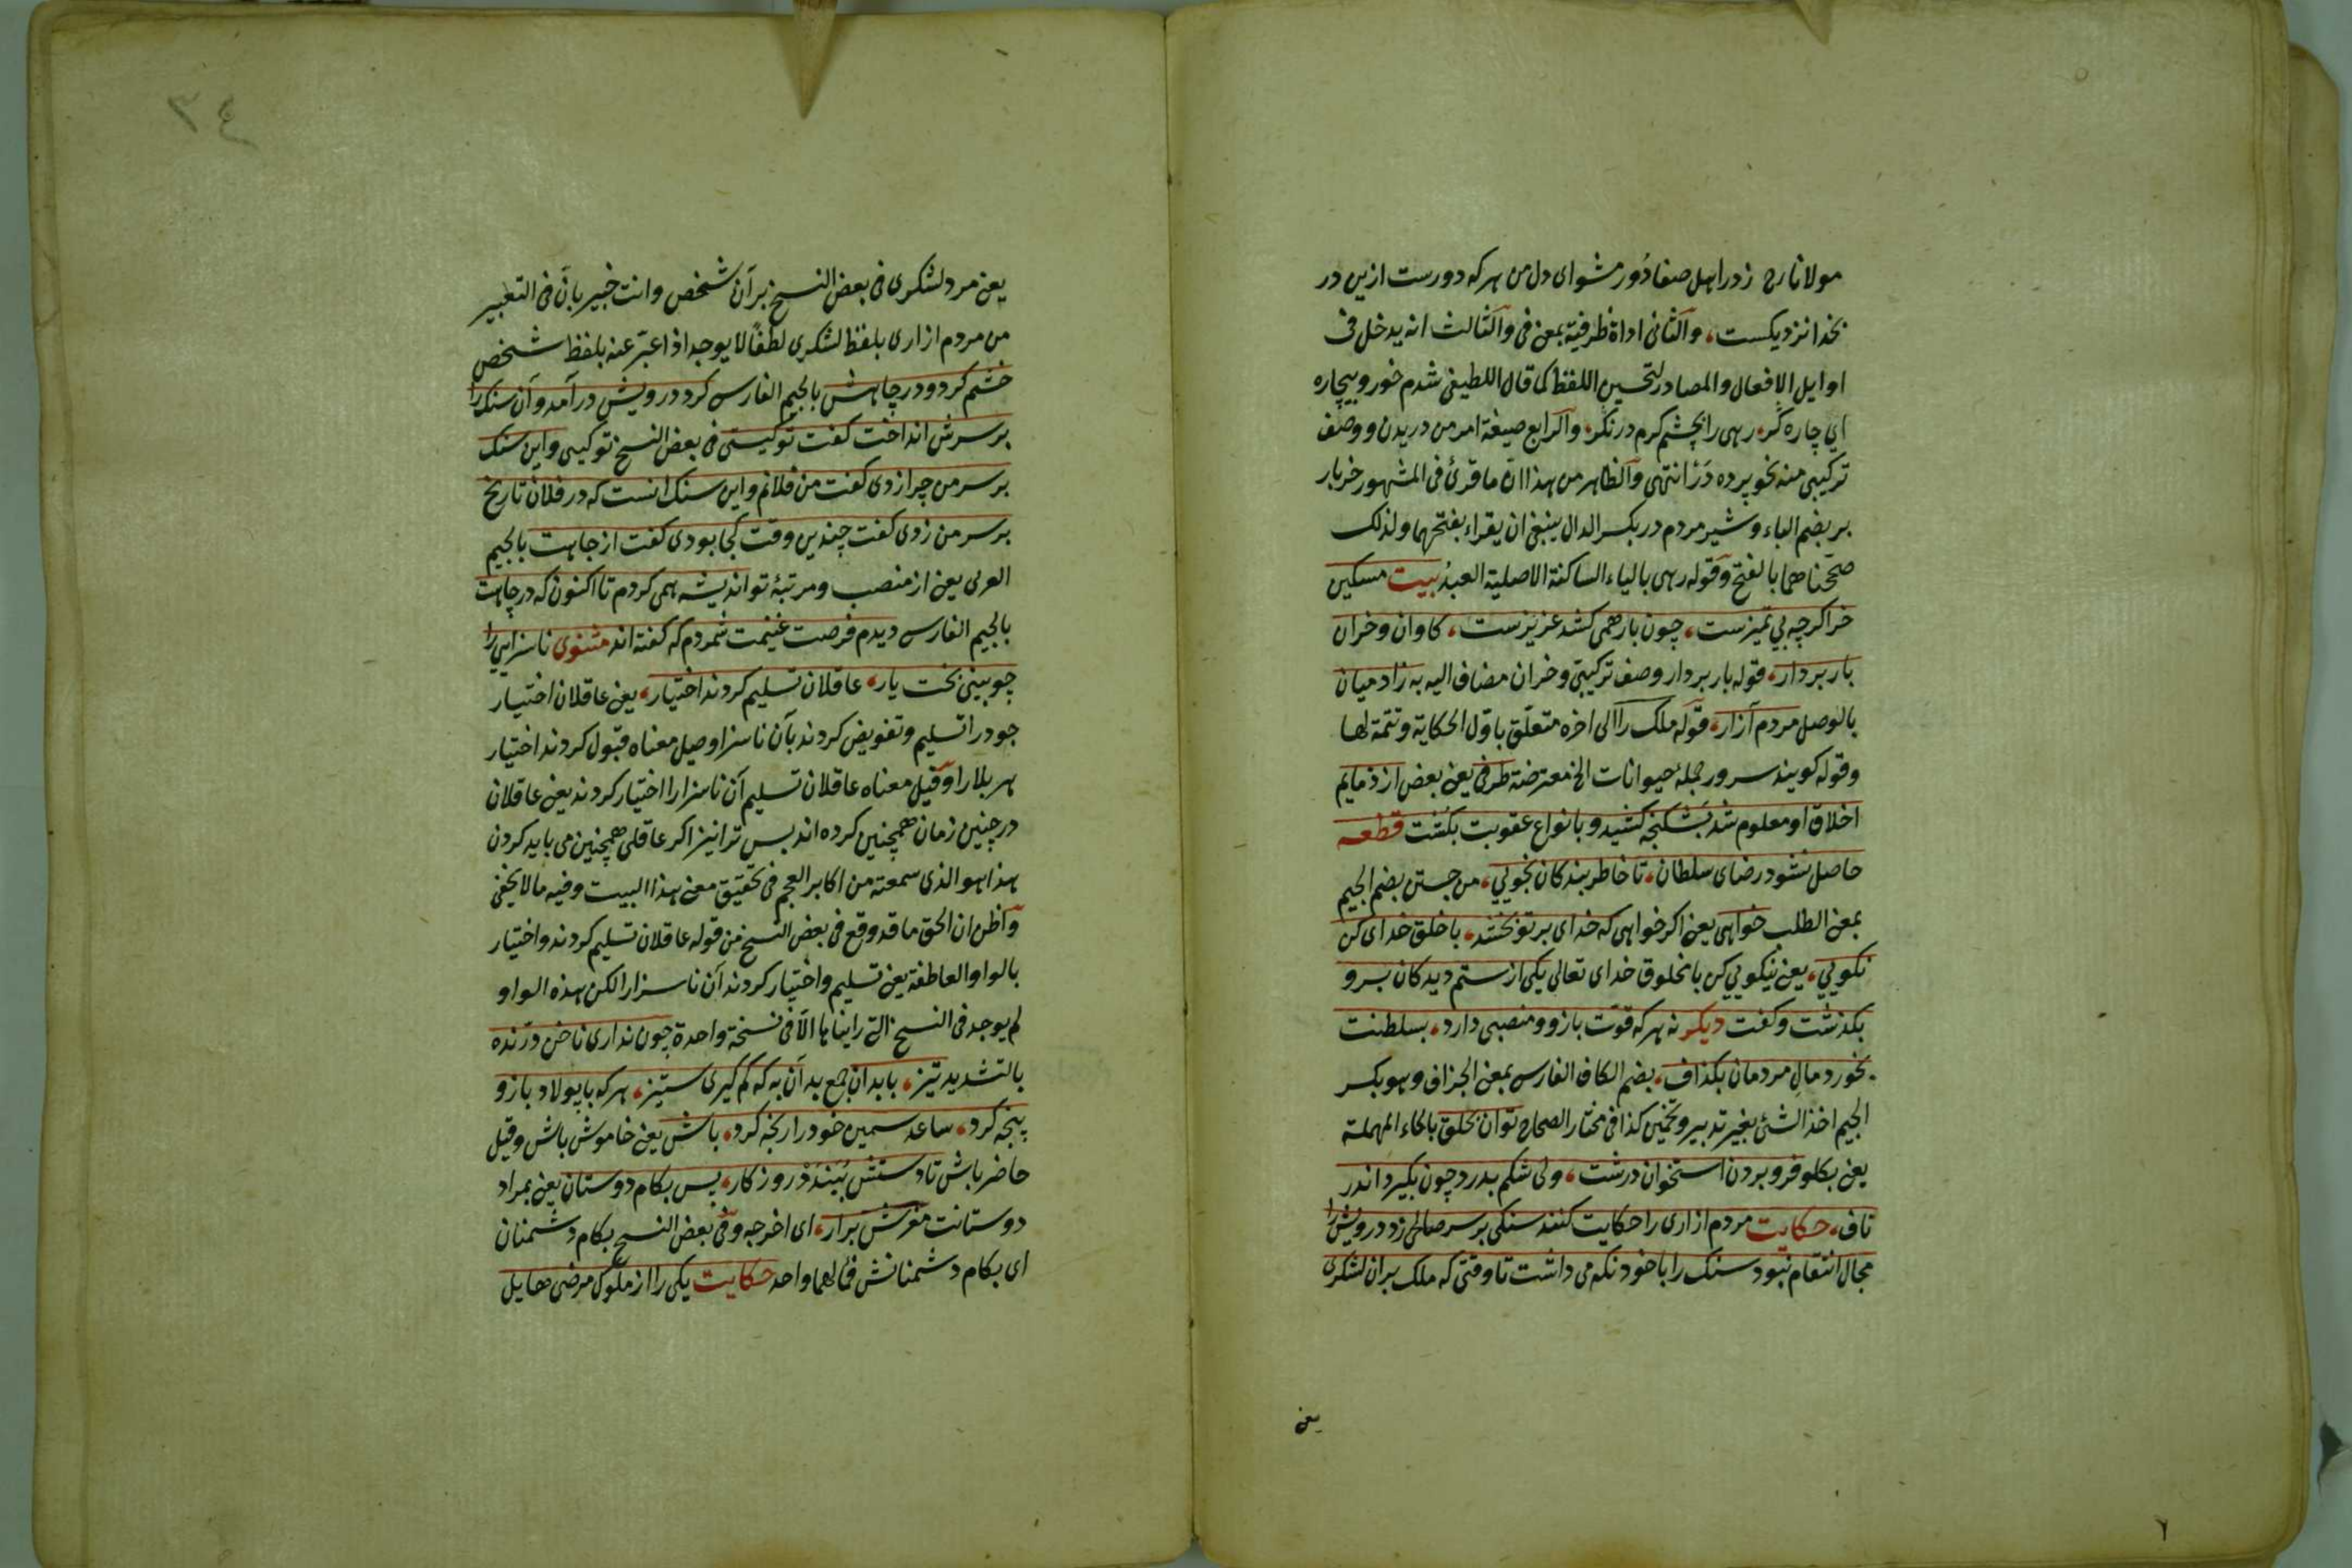 مولانا رح زدر اهل صفا دور مشو ای دل من هرکه دورست ازین در
بخدا نزدیکست، والثانی اداة ظرفیة بمعنی فی والثالث انه یدخل فی
اوایل الافعال والمصادر لتحسین اللفظ کما قال اللطیفی شدم خور و بیچاره
ای چاره گر، رهی را بچشم کرم در نگر، والرابع صیغة امر من دریدن و وصف
ترکیبی منه نحو پرده در انتهی والظاهر من هذا ان ما قرئ فی المشهور خر بار
بر بضم الباء و شیر مردم در بکسر الدال ینبغی ان یقراء بفتحهما ولذلک
صححناهما بالفتح وقوله رهی بالیاء الساکنة الاصلیة العبد بیت مسکین
خر اکرچه بی تمیزست، چون بار همی کشد عزیزست، کاوان و خران
بار بردار، قوله بار بردار وصف ترکیبی و خران مضاف الیه به زادمیان
بالوصل مردم آزار، قوله ملک را الی اخره متعلق باول الحکایة وتتمة لها
وقوله کویند سرور جمله حیوانات الخ معترضة طرفی یعنی بعض از ذمایم
اخلاق او معلوم شد بشکنجه کشید و بانواع عقوبت بکفت قطعه
حاصل نشود رضای سلطان، تا خاطر بندکان نجویی، من جستن بضم الجیم
بمعنی الطلب خواهی یعنی اکر خواهی که خدای بر تو بخشد، با خلق خدای کن
نکویی، یعنی نیکویی کن با مخلوق خدای تعالی یکی از ستم دیدکان برو
بکذشت و کفت دیکر نه هرکه قوت بازو و منصبی دارد، بسلطنت
بخورد مال مردمان بکذاف، بضم الکاف الفارسی بمعنی الجزاف وهو بکسر
الجیم اخذ الشئ بغیر تدبیر وتخمین کذا فی مختار الصحاح توان بحلق بالحاء المهملة
یعنی بکلو فرو بردن استخوان درشت، ولی شکم بدرد چون بکیرد اندر
ناف، حکایت مردم ازاری را حکایت کنند سنکی بر سر صالحی زد درویش را
مجال انتقام نبود سنک را با خود نکه می داشت تا وقتی که ملک بران لشکری
یعنی
٣٤
یعنی مرد لشکری فی بعض النسخ بر آن شخص وانت خبیر بان فی التعبیر
من مردم ازاری بلفظ لشکری لطفا لا یوجد اذا عبر عنه بلفظ شخص
خشم کرد و در چاهش بالجیم الفارسی کرد درویش در آمد و آن سنک را
بر سرش انداخت کفت تو کیستی فی بعض النسخ تو کیی و این سنک
بر سر من چرا زدی کفت من فلانم و این سنک انست که در فلان تاریخ
بر سر من زدی کفت چندین وقت کجا بودی کفت از جاهت بالجیم
العربی یعنی از منصب و مرتبۀ تو اندیشه همی کردم تا اکنون که در چاهت
بالجیم الفارسی دیدم فرصت غنیمت شمردم که کفته اند مثنوی ناسزایی را
چو بینی بخت یار، عاقلان تسلیم کردند اختیار، یعنی عاقلان اختیار
خود را تسلیم و تفویض کردند بآن ناسزا وقیل معناه قبول کردند اختیار
هر بلا را وقیل معناه عاقلان تسلیم آن ناسزا را اختیار کردند یعنی عاقلان
در چنین زمان همچنین کرده اند پس ترا نیز اکر عاقلی همچنین می باید کردن
هذا هو الذی سمعته من اکابر العجم فی تحقیق معنی هذا البیت وفیه ما لا یخفی
واظن ان الحق ما قد وقع فی بعض النسخ من قوله عاقلان تسلیم کردند و اختیار
بالواو العاطفة یعنی تسلیم و اختیار کردند آن ناسزا را لکن هذه الواو
لم یوجد فی النسخ التی رایناها الا فی نسخة واحدة چون نداری ناخن درنده
بالتشدید تیز، با بدان جمع بد آن به که کم کیری ستیز، هرکه با پولاد بازو
پنجه کرد، ساعد سیمین خود را رنجه کرد، باش یعنی خاموش باش وقیل
حاضر باش تا دستش ببندد روزکار، پس بکام دوستان یعنی بمراد
دوستانت مغزش برار، ای اخرجه وفی بعض النسخ بکام دشمنان
ای بکام دشمنانش فمآلهما واحد حکایت یکی را از ملوک مرضی هایل